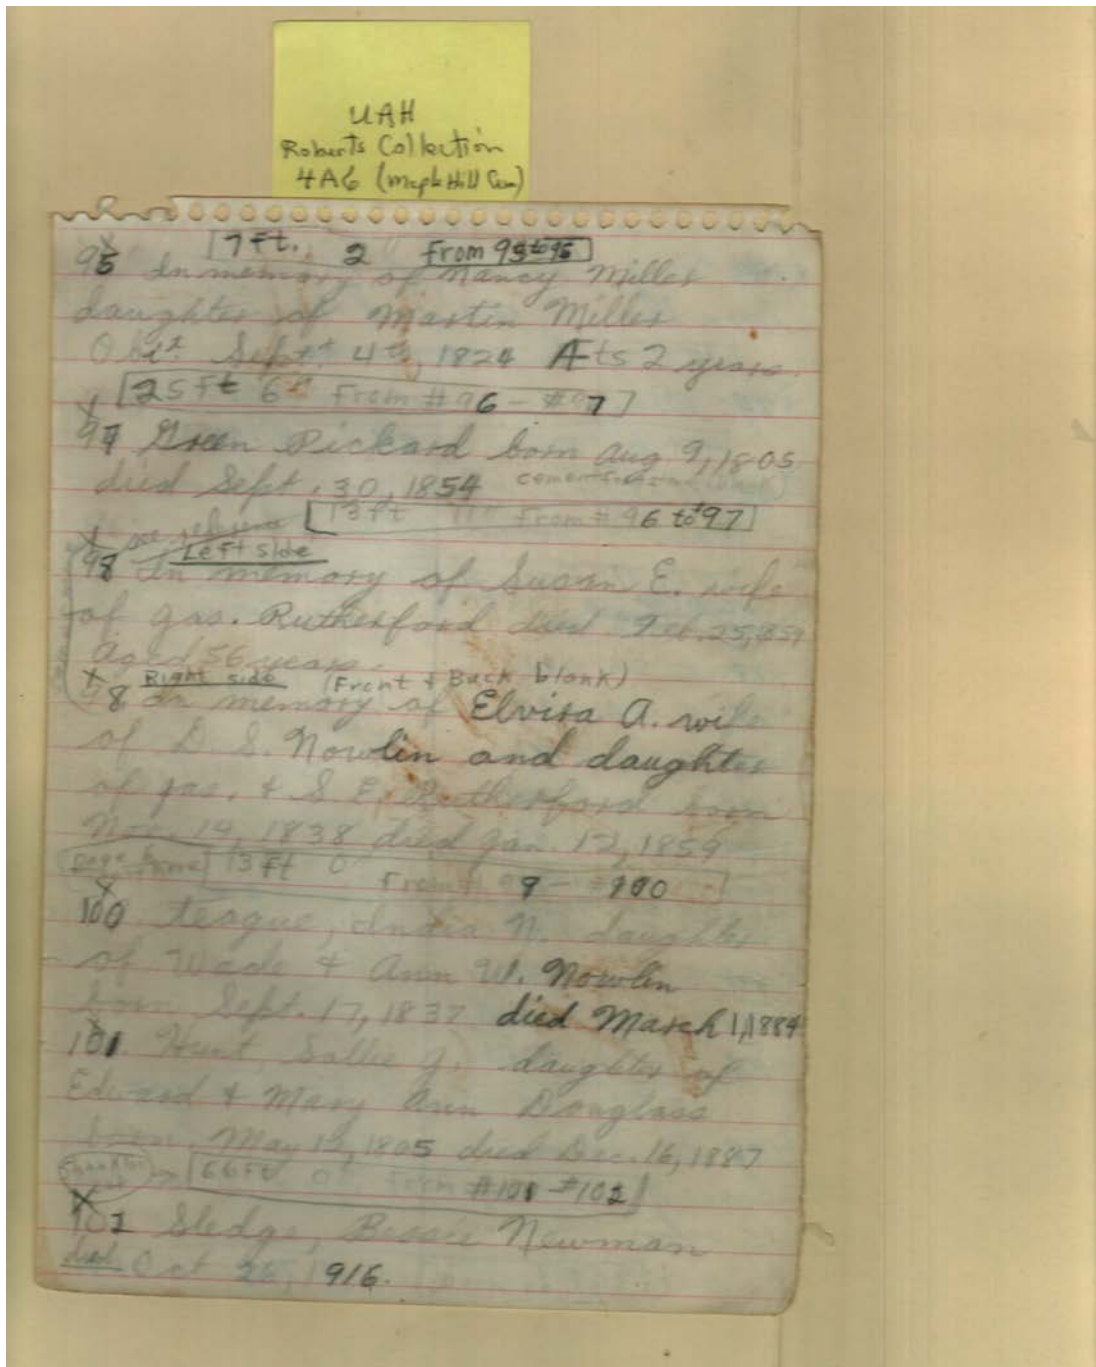 UAH
Roberts Collection
4A6 (Maple Hill Cem)
7 ft. 2" From 95 to 96
96 In memory of Nancy Miller
daughter of Martin Miller
Obit Sept. 4th, 1824 Æts 2 years.
25 ft 6" From #96 - #97
97 Green Rickard born Aug 9, 1805
died Sept. 30, 1854
13 ft 11" From # 96 to 97
Left side
98 In memory of Susan E. wife
of Jas. Rutherford died Feb. 25, 1859
Aged 56 years.
Right side (Front & Back blank)
98 In memory of Elvira A. wife
of D. S. Nowlin and daughter
of Jas. & S E. Rutherford born
Nov. 19, 1838 died Jan. 12, 1859
13 ft 0" From # 99 - #100
100 Teague, India N. daughter
of Wade & Ann W. Nowlin
born Sept. 17, 1837 died March 1, 1884
101 Hunt, Sallie J. daughter of
Edward & Mary Ann Douglass
born May 12, 1805 died Dec. 16, 1887
66 ft 0" From #101 - #102
102 Sledge, Bessie Newman
died Oct 26, 1916.